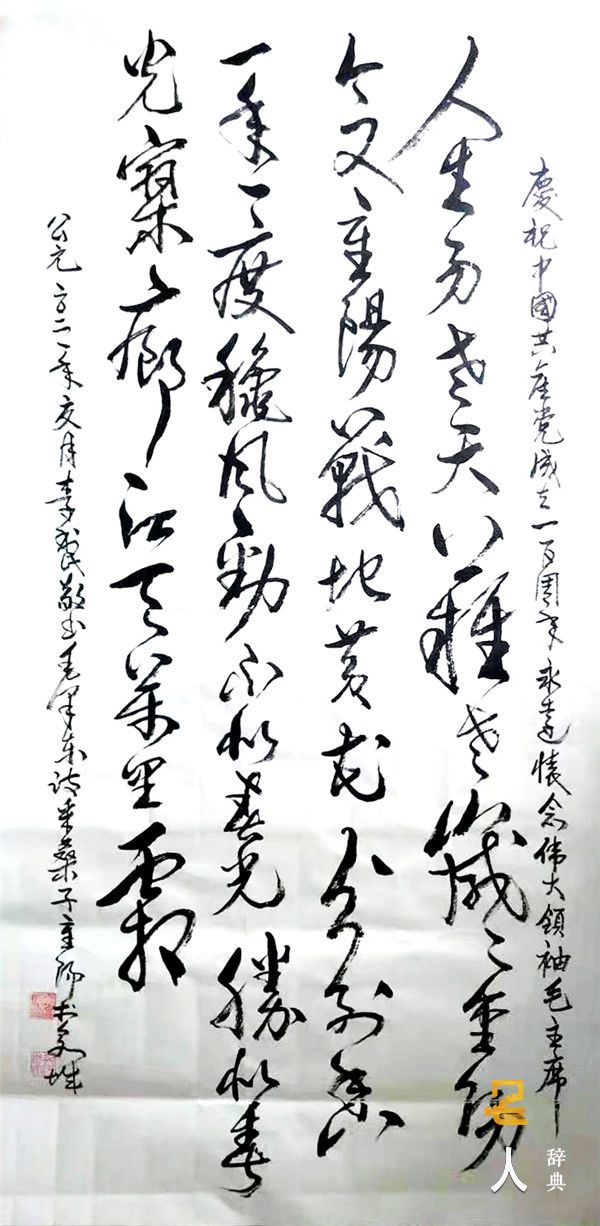 慶祝中國共產党成立一百周年永遠懷念伟大領袖毛主席
人生易老天難老歲々重陽
今又重陽戰地黄花分外香
一年一度穐風勁不似春光勝似春
光寥廓江天萬里霜
公元二〇二一年夏月李敬书毛泽东诗采桑子重阳书城
名人
辞典